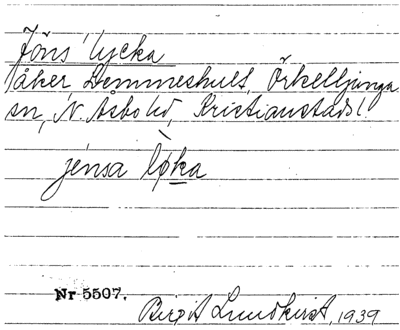 Jöns' lycka
åker, Demmeshult, Örkelljunga
sn, N. Åsbo hd, Kristianstads l.
jènsa løka
Nr 5507.
Birgit Lundkvist, 1939